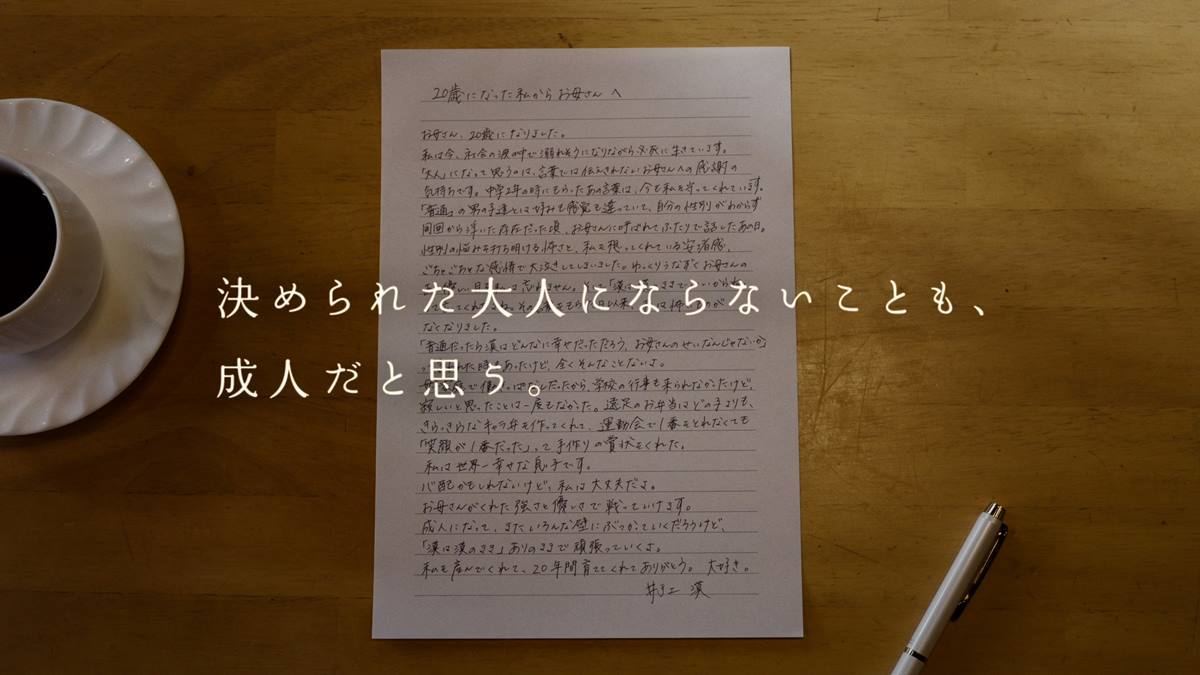 20歳になった私からお母さんへ
お母さん、20歳になりました。
私は今、社会の波の中で溺れそうになりながら必死に生きています。
「大人」になって思うのは、言葉では伝えきれないお母さんへの感謝の
気持ちです。中学2年の時にもらったあの言葉は、今も私を守ってくれています。
「普通」の男の子達とは好みも感覚も違っていて、自分の性別がわからず
周囲から浮いた存在だった頃、お母さんに呼ばれてふたりで話したあの日。
性別の悩みを打ち明ける怖さと、私を想ってくれている安堵感、
ごちゃごちゃな感情で大泣きしてしまいました。ゆっくりうなずくお母さんの
決められた大人にならないことも、
なくなりました。
「普通だったら漢はどんなに幸せだっただろう、お母さんのせいなんじゃないか」
時もあったけど、全くそんなことないよ。
成人だと思う。
だったから、学校の行事も来られなかったけど、
寂しいと思ったことは一度もなかった。遠足のお弁当はどの子よりも、
きらっきらなキャラ弁を作ってくれて、運動会で1番をとれなくても
「笑顔が1番だった」って手作りの賞状をくれた。
私は世界一幸せな息子です。
心配かもしれないけど、私は大丈夫だよ。
お母さんがくれた強さと優しさで戦っていけます。
成人になって、またいろんな壁にぶつかっていくだろうけど、
「漢は漢のまま」ありのままで頑張っていくよ。
私を産んでくれて、20年間育ててくれてありがとう。大好き。
井上 漢